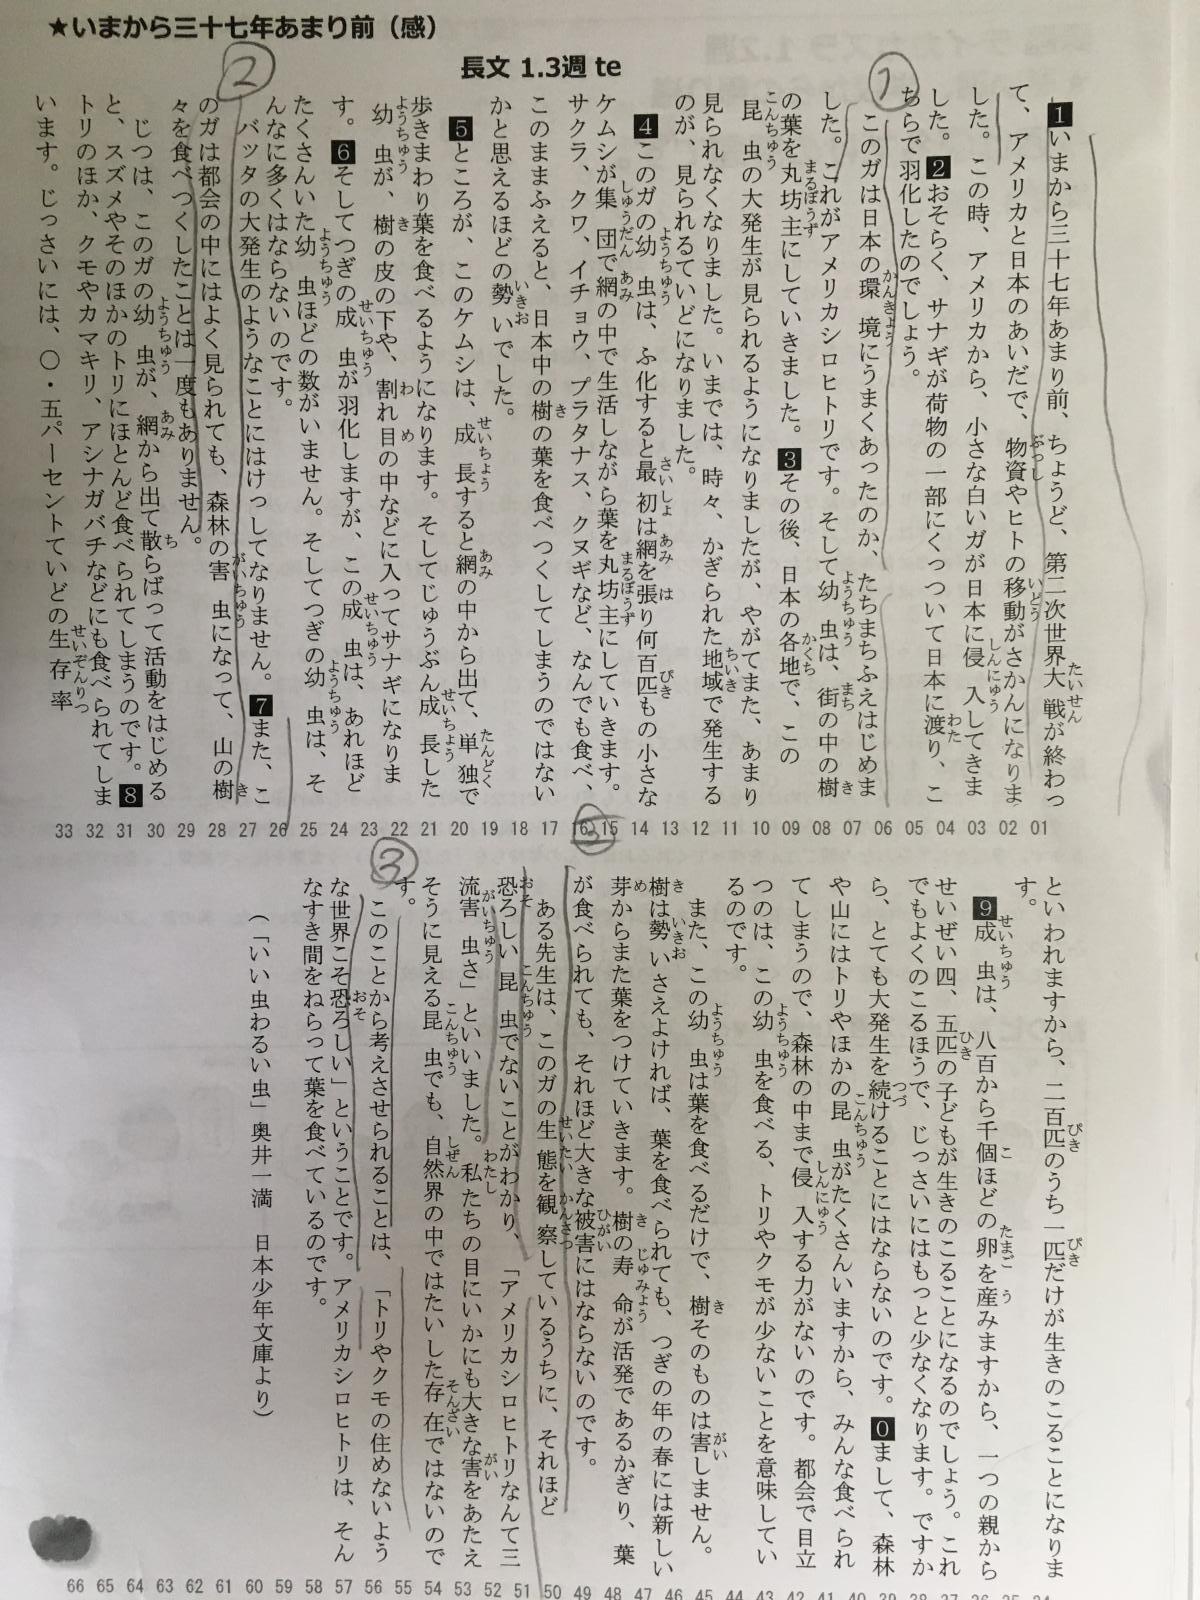 ★いまから三十七年あまり前（感）
長文 1.3週 te
1いまから三十七年あまり前、ちょうど、第二次世界大戦が終わっ
て、アメリカと日本のあいだで、物資やヒトの移動がさかんになりま
した。この時、アメリカから、小さな白いガが日本に侵入してきま
した。2おそらく、サナギが荷物の一部にくっついて日本に渡り、こ
ちらで羽化したのでしょう。
このガは日本の環境にうまくあったのか、たちまちふえはじめま
した。これがアメリカシロヒトリです。そして幼虫は、街の中の樹
の葉を丸坊主にしていきました。3その後、日本の各地で、この
昆虫の大発生が見られるようになりましたが、やがてまた、あまり
見られなくなりました。いまでは、時々、かぎられた地域で発生する
のが、見られるていどになりました。
4このガの幼虫は、ふ化すると最初は網を張り何百匹もの小さな
ケムシが集団で網の中で生活しながら葉を丸坊主にしていきます。
サクラ、クワ、イチョウ、プラタナス、クヌギなど、なんでも食べ、
このままふえると、日本中の樹の葉を食べつくしてしまうのではない
かと思えるほどの勢いでした。
5ところが、このケムシは、成長すると網の中から出て、単独で
歩きまわり葉を食べるようになります。そしてじゅうぶん成長した
幼虫が、樹の皮の下や、割れ目の中などに入ってサナギになりま
す。6そしてつぎの成虫が羽化しますが、この成虫は、あれほど
たくさんいた幼虫ほどの数がいません。そしてつぎの幼虫は、そ
んなに多くはならないのです。
バッタの大発生のようなことにはけっしてなりません。7また、こ
のガは都会の中にはよく見られても、森林の害虫になって、山の樹
々を食べつくしたことは一度もありません。
じつは、このガの幼虫が、網から出て散らばって活動をはじめる
と、スズメやそのほかのトリにほとんど食べられてしまうのです。8
トリのほか、クモやカマキリ、アシナガバチなどにも食べられてしま
います。じっさいには、〇・五パーセントていどの生存率
01 02 03 04 05 06 07 08 09 10 11 12 13 14 15 16 17 18 19 20 21 22 23 24 25 26 27 28 29 30 31 32 33
といわれますから、二百匹のうち一匹だけが生きのこることになりま
す。
9成虫は、八百から千個ほどの卵を産みますから、一つの親から
せいぜい四、五匹の子どもが生きのこることになるのでしょう。これ
でもよくのこるほうで、じっさいにはもっと少なくなります。ですか
ら、とても大発生を続けることにはならないのです。0まして、森林
や山にはトリやほかの昆虫がたくさんいますから、みんな食べられ
てしまうので、森林の中まで侵入する力がないのです。都会で目立
つのは、この幼虫を食べる、トリやクモが少ないことを意味してい
るのです。
また、この幼虫は葉を食べるだけで、樹そのものは害しません。
樹は勢いさえよければ、葉を食べられても、つぎの年の春には新しい
芽からまた葉をつけていきます。樹の寿命が活発であるかぎり、葉
が食べられても、それほど大きな被害にはならないのです。
ある先生は、このガの生態を観察しているうちに、それほど
恐ろしい昆虫でないことがわかり、「アメリカシロヒトリなんて三
流害虫さ」といいました。私たちの目にいかにも大きな害をあたえ
そうに見える昆虫でも、自然界の中ではたいした存在ではないので
す。
このことから考えさせられることは、「トリやクモの住めないよう
な世界こそ恐ろしい」ということです。アメリカシロヒトリは、そん
なすき間をねらって葉を食べているのです。
（「いい虫わるい虫」奥井一満　日本少年文庫より）
34 35 36 37 38 39 40 41 42 43 44 45 46 47 48 49 50 51 52 53 54 55 56 57 58 59 60 61 62 63 64 65 66
①
②
③
③